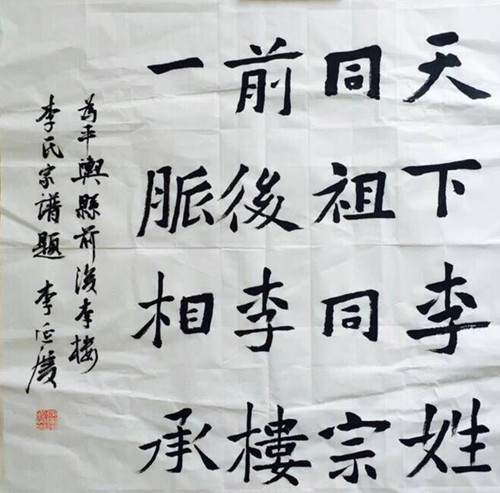 天下李姓
同祖同宗
前後李樓
一脈相承
為平輿縣前後李樓
李氏宗譜題 李延廣